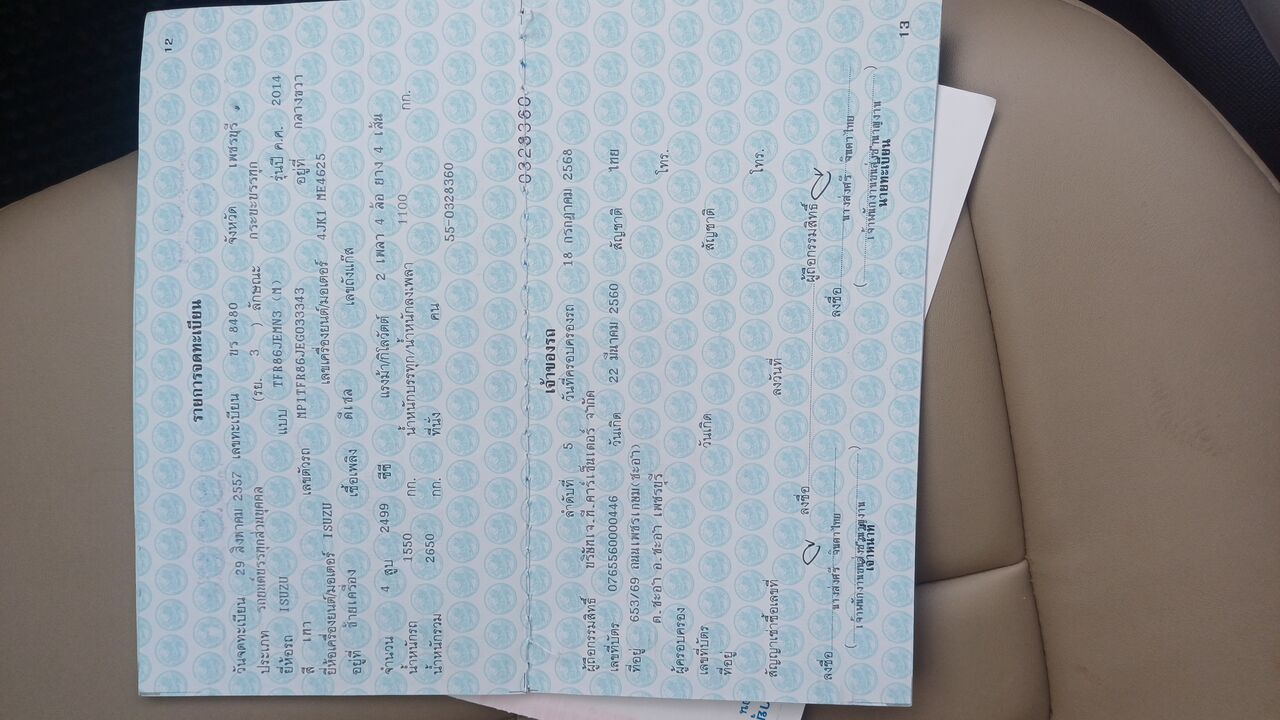 12
รายการจดทะเบียน
วันจดทะเบียน 29 สิงหาคม 2557 เลขทะเบียน ขร 8480 จังหวัด เพชรบุรี
ประเภท รถยนต์บรรทุกส่วนบุคคล (รย. 3 ) ลักษณะ กระบะบรรทุก
ยี่ห้อรถ ISUZU แบบ TFR86JEMN3 (M) รุ่นปี ค.ศ. 2014
สี เทา เลขตัวรถ MP1TFR86JEG033343 อยู่ที่ กลางขวา
ยี่ห้อเครื่องยนต์/มอเตอร์ ISUZU เลขเครื่องยนต์/มอเตอร์ 4JK1 ME4625
อยู่ที่ ซ้ายเครื่อง เชื้อเพลิง ดีเซล เลขถังแก๊ส
จำนวน 4 สูบ 2499 ซีซี แรงม้า/กิโลวัตต์ 2 เพลา 4 ล้อ ยาง 4 เส้น
น้ำหนักรถ 1550 กก. น้ำหนักบรรทุก/น้ำหนักลงเพลา 1100 กก.
น้ำหนักรวม 2650 กก. ที่นั่ง คน
55-0328360
0328360
เจ้าของรถ
ลำดับที่ 5 วันที่ครอบครองรถ 18 กรกฎาคม 2568
ผู้ถือกรรมสิทธิ์ บริษัทเจ.ที.คาร์เซ็นเตอร์ จำกัด
เลขที่บัตร 0765560000446 วันเกิด 22 มีนาคม 2560 สัญชาติ ไทย
ที่อยู่ 653/69 ถนนเพชรเกษม(ชะอำ)
ต.ชะอำ อ.ชะอำ เพชรบุรี โทร.
ผู้ครอบครอง
เลขที่บัตร วันเกิด สัญชาติ
ที่อยู่
โทร.
สัญญาเช่าซื้อเลขที่ ลงวันที่
ลงชื่อ ผู้ถือกรรมสิทธิ์
ลงชื่อ นางส่งศรี จินดาไทย ลงชื่อ นางส่งศรี จินดาไทย
(เจ้าพนักงานขนส่งชำนาญงาน) (เจ้าพนักงานขนส่งชำนาญงาน)
เจ้าหน้าที่ นายทะเบียน
13